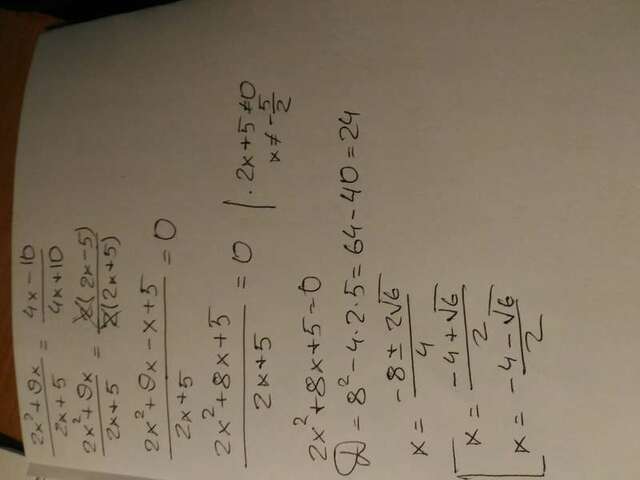 2x²+9x / 2x+5 = 4x-10 / 4x+10
2x²+9x / 2x+5 = 2(2x-5) / 2(2x+5)
2x²+9x-x+5 / 2x+5 = 0
2x²+8x+5 / 2x+5 = 0 | ·2x+5≠0
x≠-5/2
2x²+8x+5=0
D=8²-4·2·5=64-40=24
x= -8±2√6 / 4
[ x= -4+√6 / 2
x= -4-√6 / 2